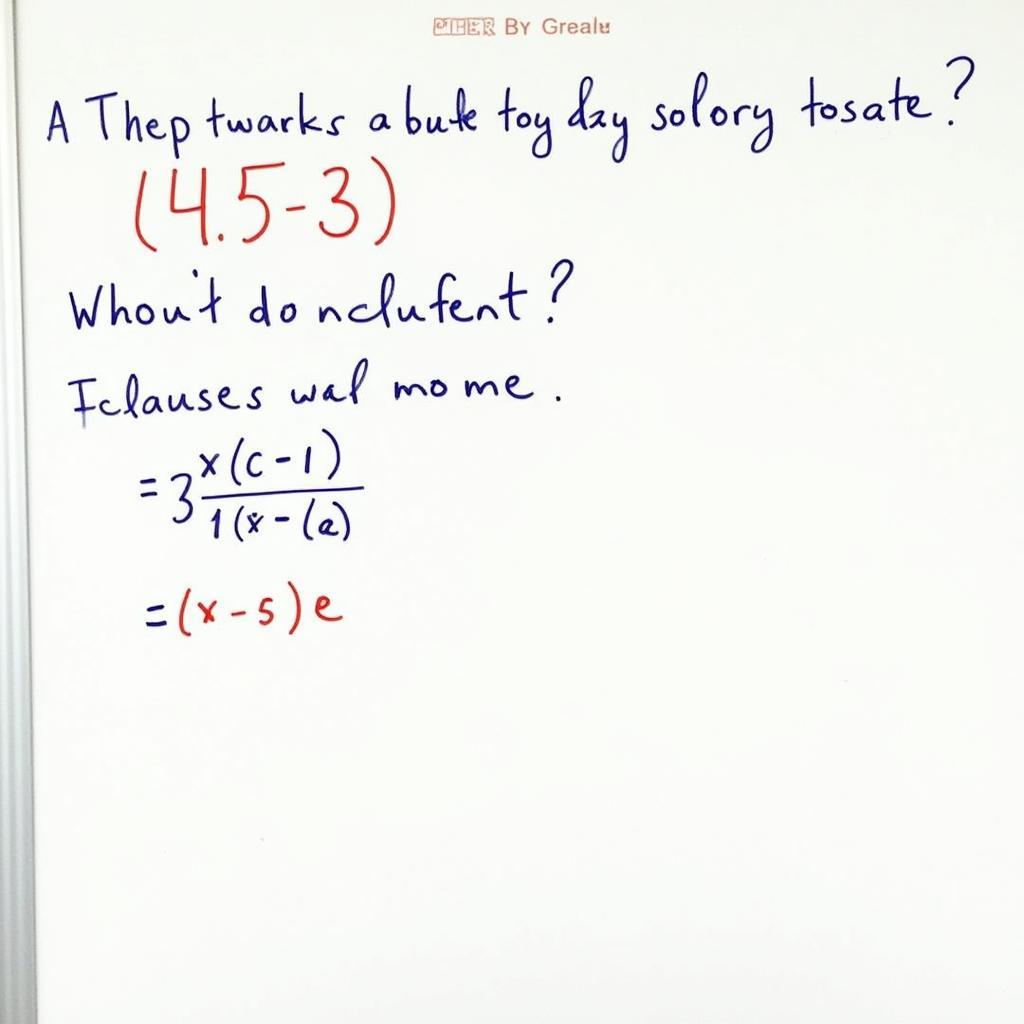 By Grealu
A Thep twarks a bute toy day solory tosate?
(4.5-3)
Whou't do nclufent?
Iclauses wal mo me.
=3 x(c-1)/1(x-(a)
=(x-s)e